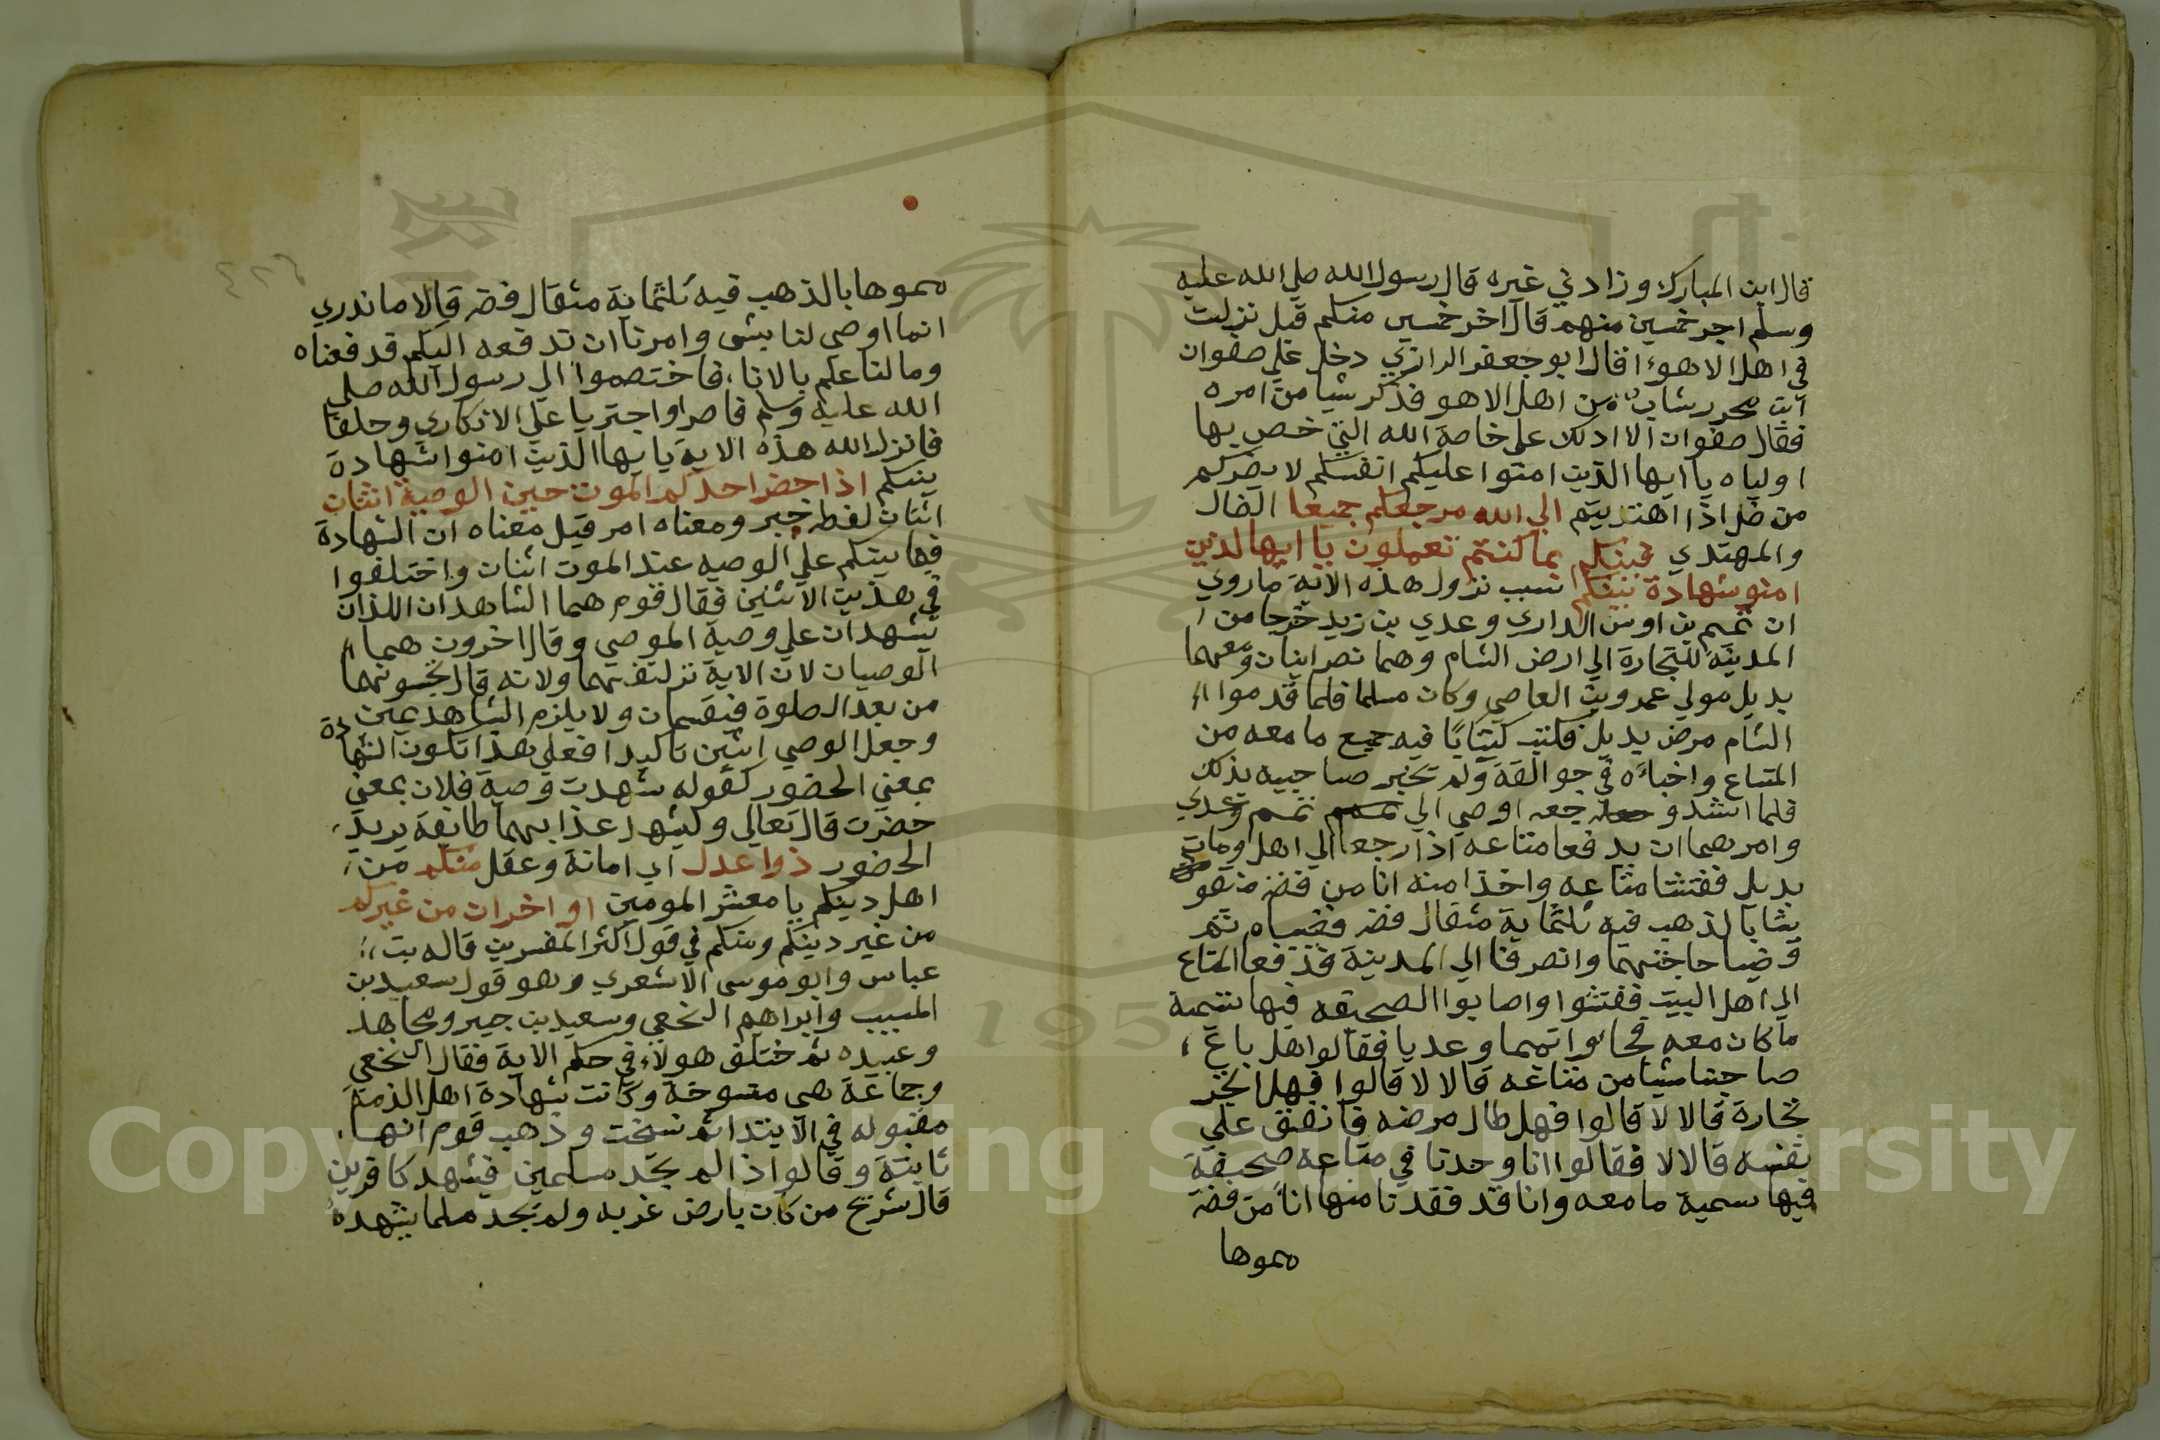 قال ابن المبارك وزادني غيره قال رسول الله صلي الله عليه
وسلم اجر خمسين منهم قال اخر خمسين منكم قيل نزلت
في اهل الاهوءا قال ابو جعفر الرازي دخل علي صفوان
ابن محرر شاب من اهل الاهو فذكر شيا من امره
فقال صفوان الا ادلك علي خاصة الله التي خص بها
اولياه يا ايها الذين امنوا عليكم انفسكم لا يضركم
من ضل اذا اهتديتم الي الله مرجعكم جميعا الضال
والمهتدي فينبكم بما كنتم تعملون يا ايها الذين
امنو شهادة بينكم سبب نزول هذه الاية ماروي
ان تميم بن اوس الداري وعدي بن زيد خرجا من
المدينة للتجارة الي ارض الشام وهما نصرانيان ومعهما
بديل مولي عمرو بن العاصي وكان مسلما فلما قدموا
الشام مرض بديل فكتب كتابا فيه جميع ما معه من
المتاع واخباه في جوالقة ولم تخبر صاحبيه بذلك
فلما اشتد وجعه اوصي الي تميم وعدي
وامرهما ان يدفعا متاعه اذا رجعا الي اهل ومات
بديل ففتشا متاعه واخذا منه انا من فضه منقو
بثا بالذهب فيه ثلثماية مثقال فضه فغيباه ثم
قضيا حاجتهما وانصرفا الي المدينة فدفعا المتاع
الي اهل البيت ففتشوا واصابوا الصحيفه فيها تسمية
ما كان معه فجائوا تميما وعديا فقالوا هل باع
صاحبنا شيا من متاعه قالا لا قالوا فهل اتجر
تجارة قالا لا قالوا فهل طال مرضه فانفق علي
نفسه قالا لا فقالوا انا وجدنا في متاعه صحيفة
فيها سمية ما معه وانا قد فقدنا منها انا من فضة
مموها
مموها بالذهب فيه ثلثماية مثقال فضه قالا ما ندري
انما اوصي لنا بشى وامرنا ان ندفعه اليكم فدفعناه
ومالنا علم بالانا، فاختصموا الي رسول الله صلي
الله عليه وسلم فاصراوا جتريا علي الانكاري وحلفا
فانزل الله هذه الاية يايها الذين امنوا شهادة
بينكم اذا حضر احدكم الموت حين الوصية اثنان
اثنان لفظه خبر ومعناه امر قيل معناه ان الشهادة
فيما بينكم علي الوصيه عند الموت اثنان واختلفوا
في هذين الاثنين فقال قوم هما الشاهدان اللذان
يشهدان علي وصية الموصي وقال اخرون هما
الوصيان لان الاية نزلت فيهما ولانه قال تحبسونهما
من بعد الصلوة فيقسمان ولا يلزم الشاهد يمين
وجعل الوصي اثنين تاكيدا فعلي هذا تكون الشهادة
بمعني الحضور كقوله شهدت وصية فلان بمعني
حضرت قال تعالي وليشهد عذابهما طايفة يريد
الحضور ذوا عدل اي امانة وعقل منكم من
اهل دينكم يا معشر المومين او اخران من غيركم
من غير دينكم وملتكم في قول اكثر المفسرين قاله بن
عباس وابو موسى الاشعري وهو قول سعيد بن
المسيب وابراهيم النخعي وسعيد بن جبير ومجاهد
وعبيده ثم ختلف هولاء في حكم الاية فقال النخعي
وجماعة هي منسوخة وكانت شهادة اهل الذمة
مقبوله في الابتدا ثم نسخت وذهب قوم انها
ثابتة وقالوا اذا لم يجد مسلمين فيشهد كافرين
قال شريح من كان بارض غربه ولم يجد مسلما يشهده
Copyright © King Saud University
195